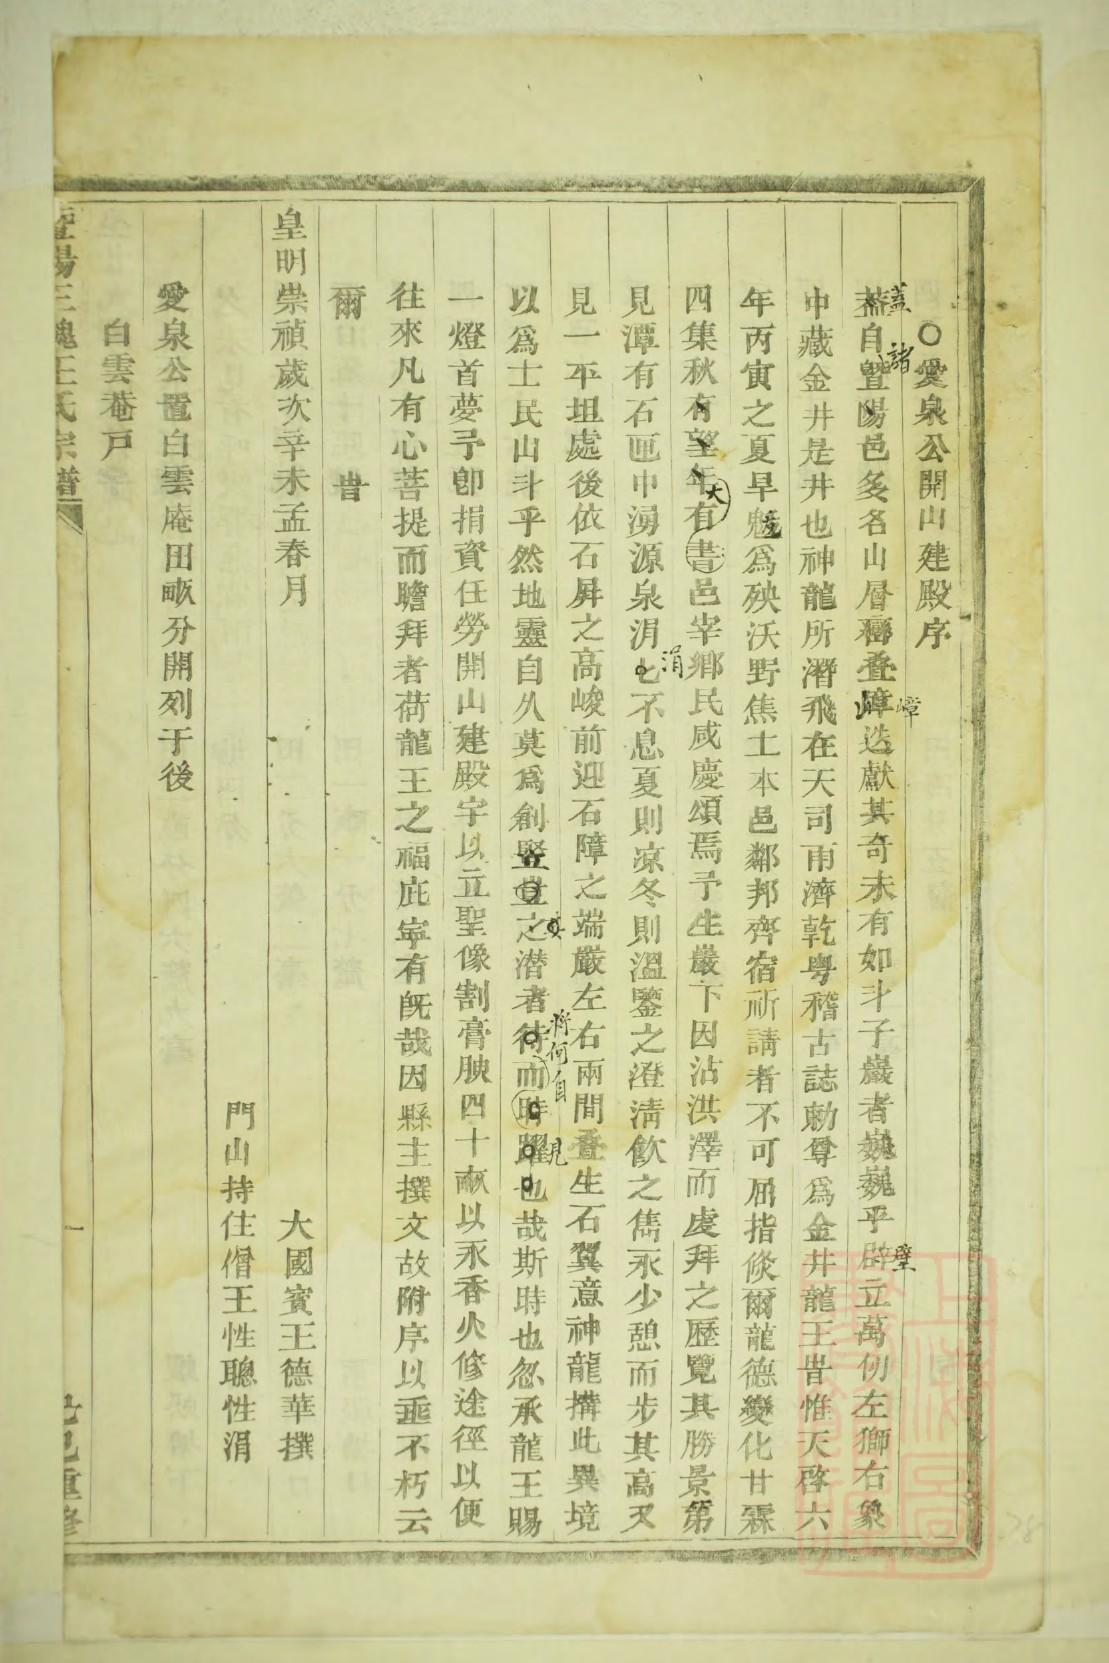 ○愛泉公開山建殿序
蓋自曁陽邑多名山層巒疊嶂迭獻其奇未有如斗子巖者巍巍乎辟立萬仞左獅右象
中藏金井是井也神龍所潛飛在天司雨濟乾粤稽古誌勅尊爲金井龍王昔惟天啓六
年丙寅之夏旱魃爲殃沃野焦土本邑鄰邦齊宿祈請者不可屈指倐爾龍德變化甘霖
四集秋有望年有書邑宰鄉民咸慶頌焉予生巖下因沾洪澤而虔拜之歷覽其勝景第
見潭有石匣中湧源泉涓匕不息夏則凉冬則溫鑒之澄淸飮之雋永少憩而步其高又
見一平坦處後依石屛之高峻前迎石障之端嚴左右兩間疊生石翼意神龍搆此異境
以爲士民山斗乎然地靈自久莫爲創豎豈之潛者待而時躍也哉斯時也忽承龍王賜
一燈首夢予卽捐資任勞開山建殿宇以立聖像割膏腴四十畝以永香火修途徑以便
往來凡有心菩提而瞻拜者荷龍王之福庇寧有旣哉因縣主撰文故附序以垂不朽云
爾 旹
皇明崇禎歲次辛未孟春月 大國賓王德華撰
門山持住僧王性聰性涓
愛泉公置白雲庵田畝分開列于後
白雲菴戸
曁陽三魂王氏宗譜 一 己巳重修
蓋
諸
嶂
璧
大
涓
將何自
見